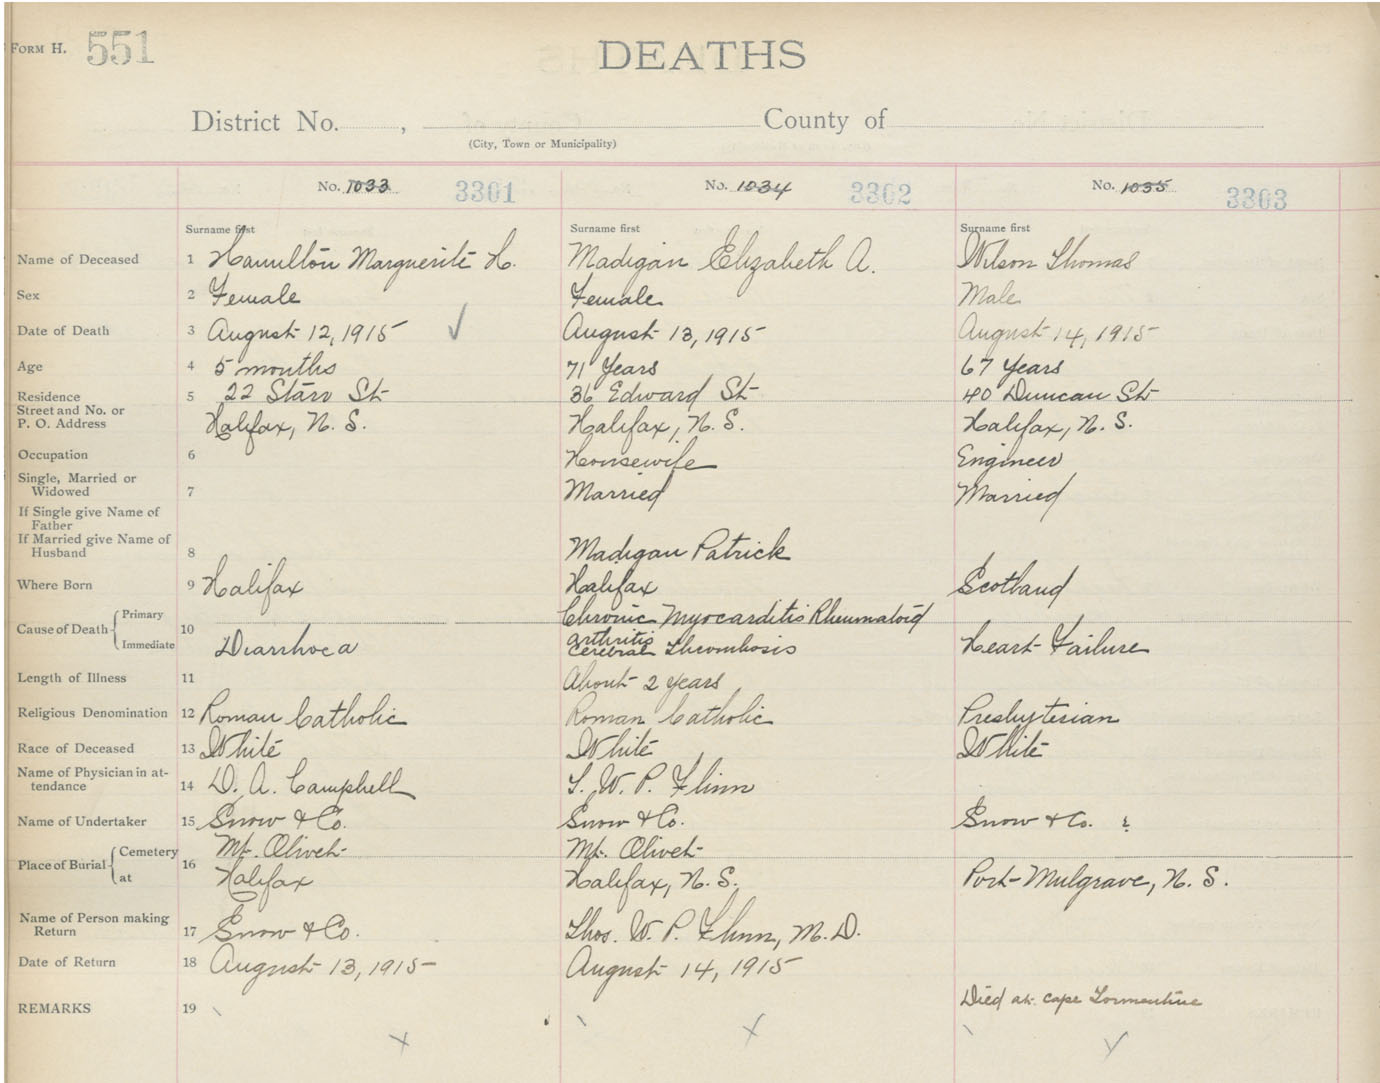 FORM H. 551
DEATHS
District No. , County of
(City, Town or Municipality)
No. 1033 3301 No. 1034 3302 No. 1035 3303
Surname first Surname first Surname first
Name of Deceased 1 Hamilton Marguerite H. Madigan Elizabeth A. Wilson Thomas
Sex 2 Female Female Male
Date of Death 3 August 12, 1915 August 13, 1915 August 14, 1915
Age 4 5 months 71 Years 67 Years
Residence 5 22 Starr St 36 Edward St 40 Duncan St
Street and No. or
P. O. Address Halifax, N. S. Halifax, N. S. Halifax, N. S.
Occupation 6 Housewife Engineer
Single, Married or
Widowed 7 Married Married
If Single give Name of
Father
If Married give Name of
Husband 8 Madigan Patrick
Where Born 9 Halifax Halifax Scotland
Cause of Death 10 Primary Chronic Myocarditis Rheumatoid
arthritis
Immediate Diarrhoea Cerebral Thrombosis Heart Failure
Length of Illness 11 About 2 years
Religious Denomination 12 Roman Catholic Roman Catholic Presbyterian
Race of Deceased 13 White White White
Name of Physician in at-
tendance 14 D. A. Campbell T. W. P. Flinn
Name of Undertaker 15 Snow & Co. Snow & Co. Snow & Co.
Place of Burial 16 Cemetery Mt. Olivet Mt. Olivet
at Halifax Halifax, N. S. Port Mulgrave, N. S.
Name of Person making
Return 17 Snow & Co. Thos. W. P. Flinn, M. D.
Date of Return 18 August 13, 1915 August 14, 1915
REMARKS 19 Died at Cape Tormentine